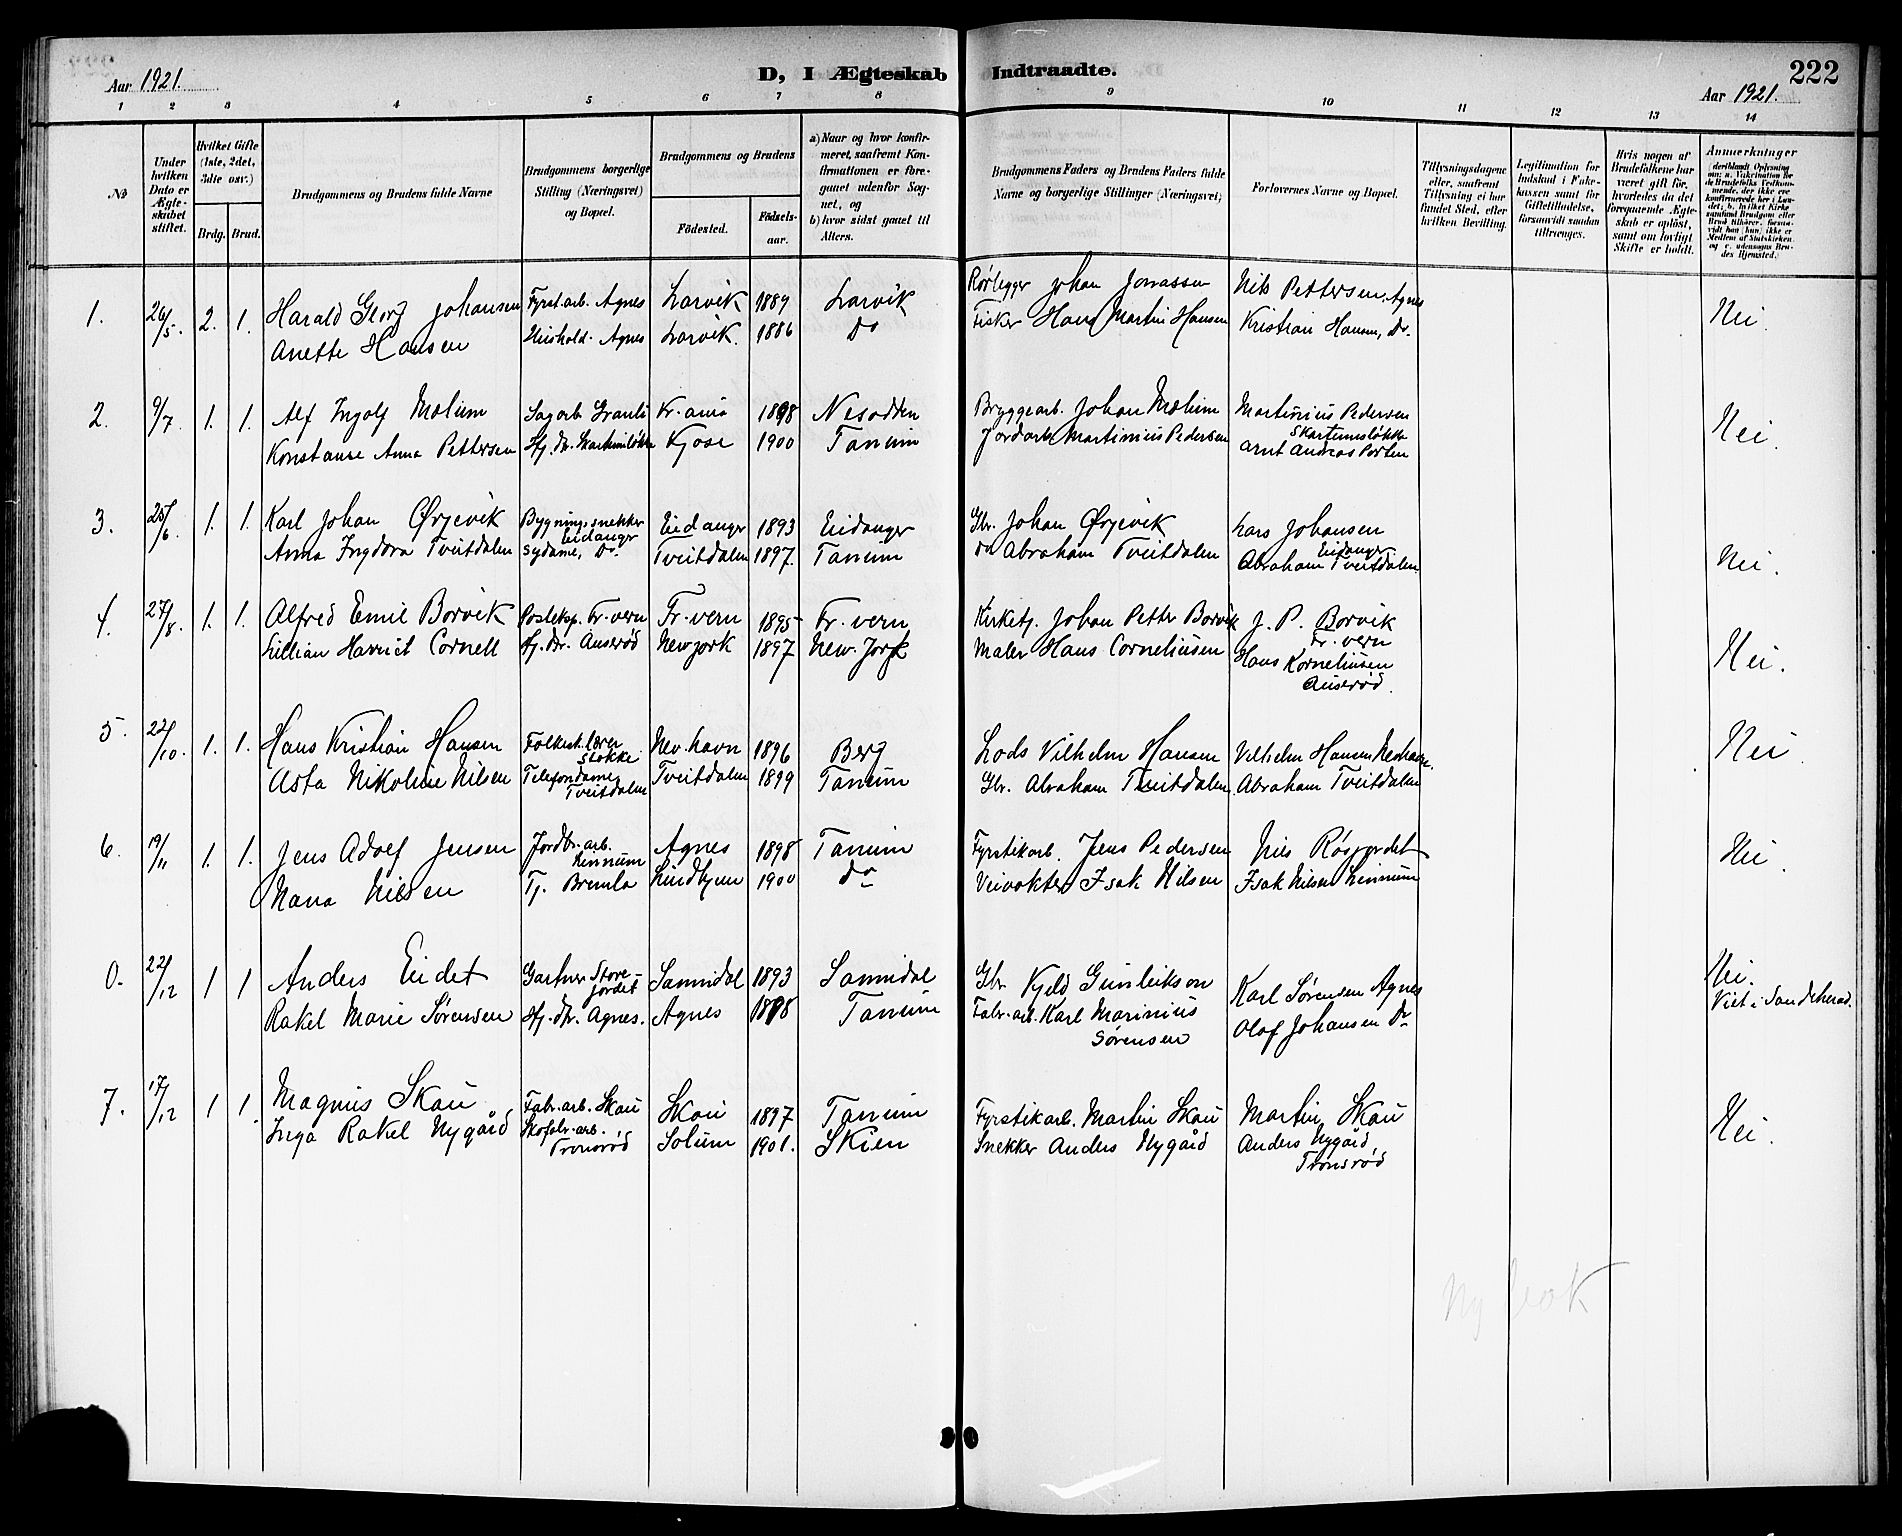 Aar 1921.
D, I Ægteskab Indtraadte.
222
Aar 1921.
1 2 3 4 5 6 7 8 9 10 11 12 13 14
No
Under hvilken Dato er Ægteskabet stiftet.
Hvilket Gifte (1ste, 2det, 3die osv.)
Brdg. Brud.
Brudgommens og Brudens fulde Navne
Brudgommens borgerlige Stilling (Næringsvei) og Bopæl.
Brudgommens og Brudens
Födested. Födselsaar.
a) Naar og hvor konfirmeret, saafremt Konfirmationen er foregaaet udenfor Sognet, og
b) hvor sidst gaaet til Alters.
Brudgommens Faders og Brudens Faders fulde Navne og borgerlige Stillinger (Næringsvei)
Forlovernes Navne og Bopæl.
Tillysningsdagene eller, saafremt Tillysning ei har fundet Sted, efter hvilken Bevilling.
Legitimation for Indskud i Enkekassen samt for Giftetilladelse, forsaavidt saadan tiltrænges.
Hvis nogen af Brudefolkene har været gift før, hvorledes da det foregaaende Ægteskab er opløst, samt om lovligt Skifte er holdt.
Anmærkninger
1. 26/5. 2. 1. Harald Georg Johansen Fyrst.arb. Agnes Larvik 1889 Larvik Rørlegger Johan Jonassen Nils Pettersen, Agnes Nei.
Anette Hansen Hushold. Agnes Larvik. 1886 Do Fisker Hans Martin Hansen Kristian Hansen, Do.
2. 9/7. 1. 1. Alf Ingolf Mælum Sagarb. Granli Kr.ania 1898 Nesodden Bryggearb. Johan Mælum Martinius Pedersen Nei.
Skartumsløkka
Konstanse Anna Pettersen Hj. dr. Skartumsløkka Kjose 1900 Tanum Jordarb. Martinius Pedersen Arnt Andreas Porten
3. 25/6. 1. 1. Karl Johan Ørjevik Bygningssnekker Eidanger Eidanger 1893 Eidanger Gbr. Johan Ørjevik Lars Johansen Eidanger Nei.
Anna Ingdora Tveitdalen sydame, Do. Tveitdalen 1897. Tanum Do Abraham Tveitdalen Abraham Tveitdalen
4. 27/8. 1. 1. Alfred Emil Borvik Posteksp. Fr.vern Fr.vern 1895 Fr.vern Kirketj. Johan Petter Borvik J. P. Borvik Fr.vern Nei.
Lillian Harriet Cornell Hj. dr. Auserød New york 1897 New-Jork Maler Hans Corneliusen Hans Korneliusen Auserød.
5. 22/10. 1. 1. Hans Kristian Hansen Folkesk.lærer Stokke Nev.havn 1896 Berg Lods Vilhelm Hansen Vilhelm Hansen Nevlhavn. Nei
Asta Nikoline Nilsen Telefondame Tveitdalen Tveitdalen 1899 Tanum Gbr. Abraham Tveitdalen Abraham Tveitdalen
6. 19/11 1. 1. Jens Adolf Jensen Jordbr.arb. Rinnum Agnes 1898 Tanum Fyrstikarb. Jens Pedersen Nils Røsjordet Nei.
Mana Nilsen Tj. Bremla Lindhjem 1900 do Veivokter Isak Nilsen Isak Nilsen Linnum
0. 22/12 1 1 Anders Eidet Gartner Storejordet Sannidal 1893 Sannidal Gbr. Kjeld Gunleikson Karl Sørensen Agnes Nei. Viet i Sandeherad.
Rakel Marie Sørensen Hj. dtr. Agnes. Agnes 1898 Tanum Fabr.arb. Karl Marinius Sørensen Olaf Johansen Do
7. 17/12 1 1 Magnus Skau Fabr.arb. Skau Skau 1897 Tanum Fyrstikarb. Martin Skau Martin Skau Nei.
Inga Rakel Nygård Skofabr.arb. Tronsrød Solum 1901. Skien Snekker Anders Nygård Anders Nygård, Tronsrød
Ny bok